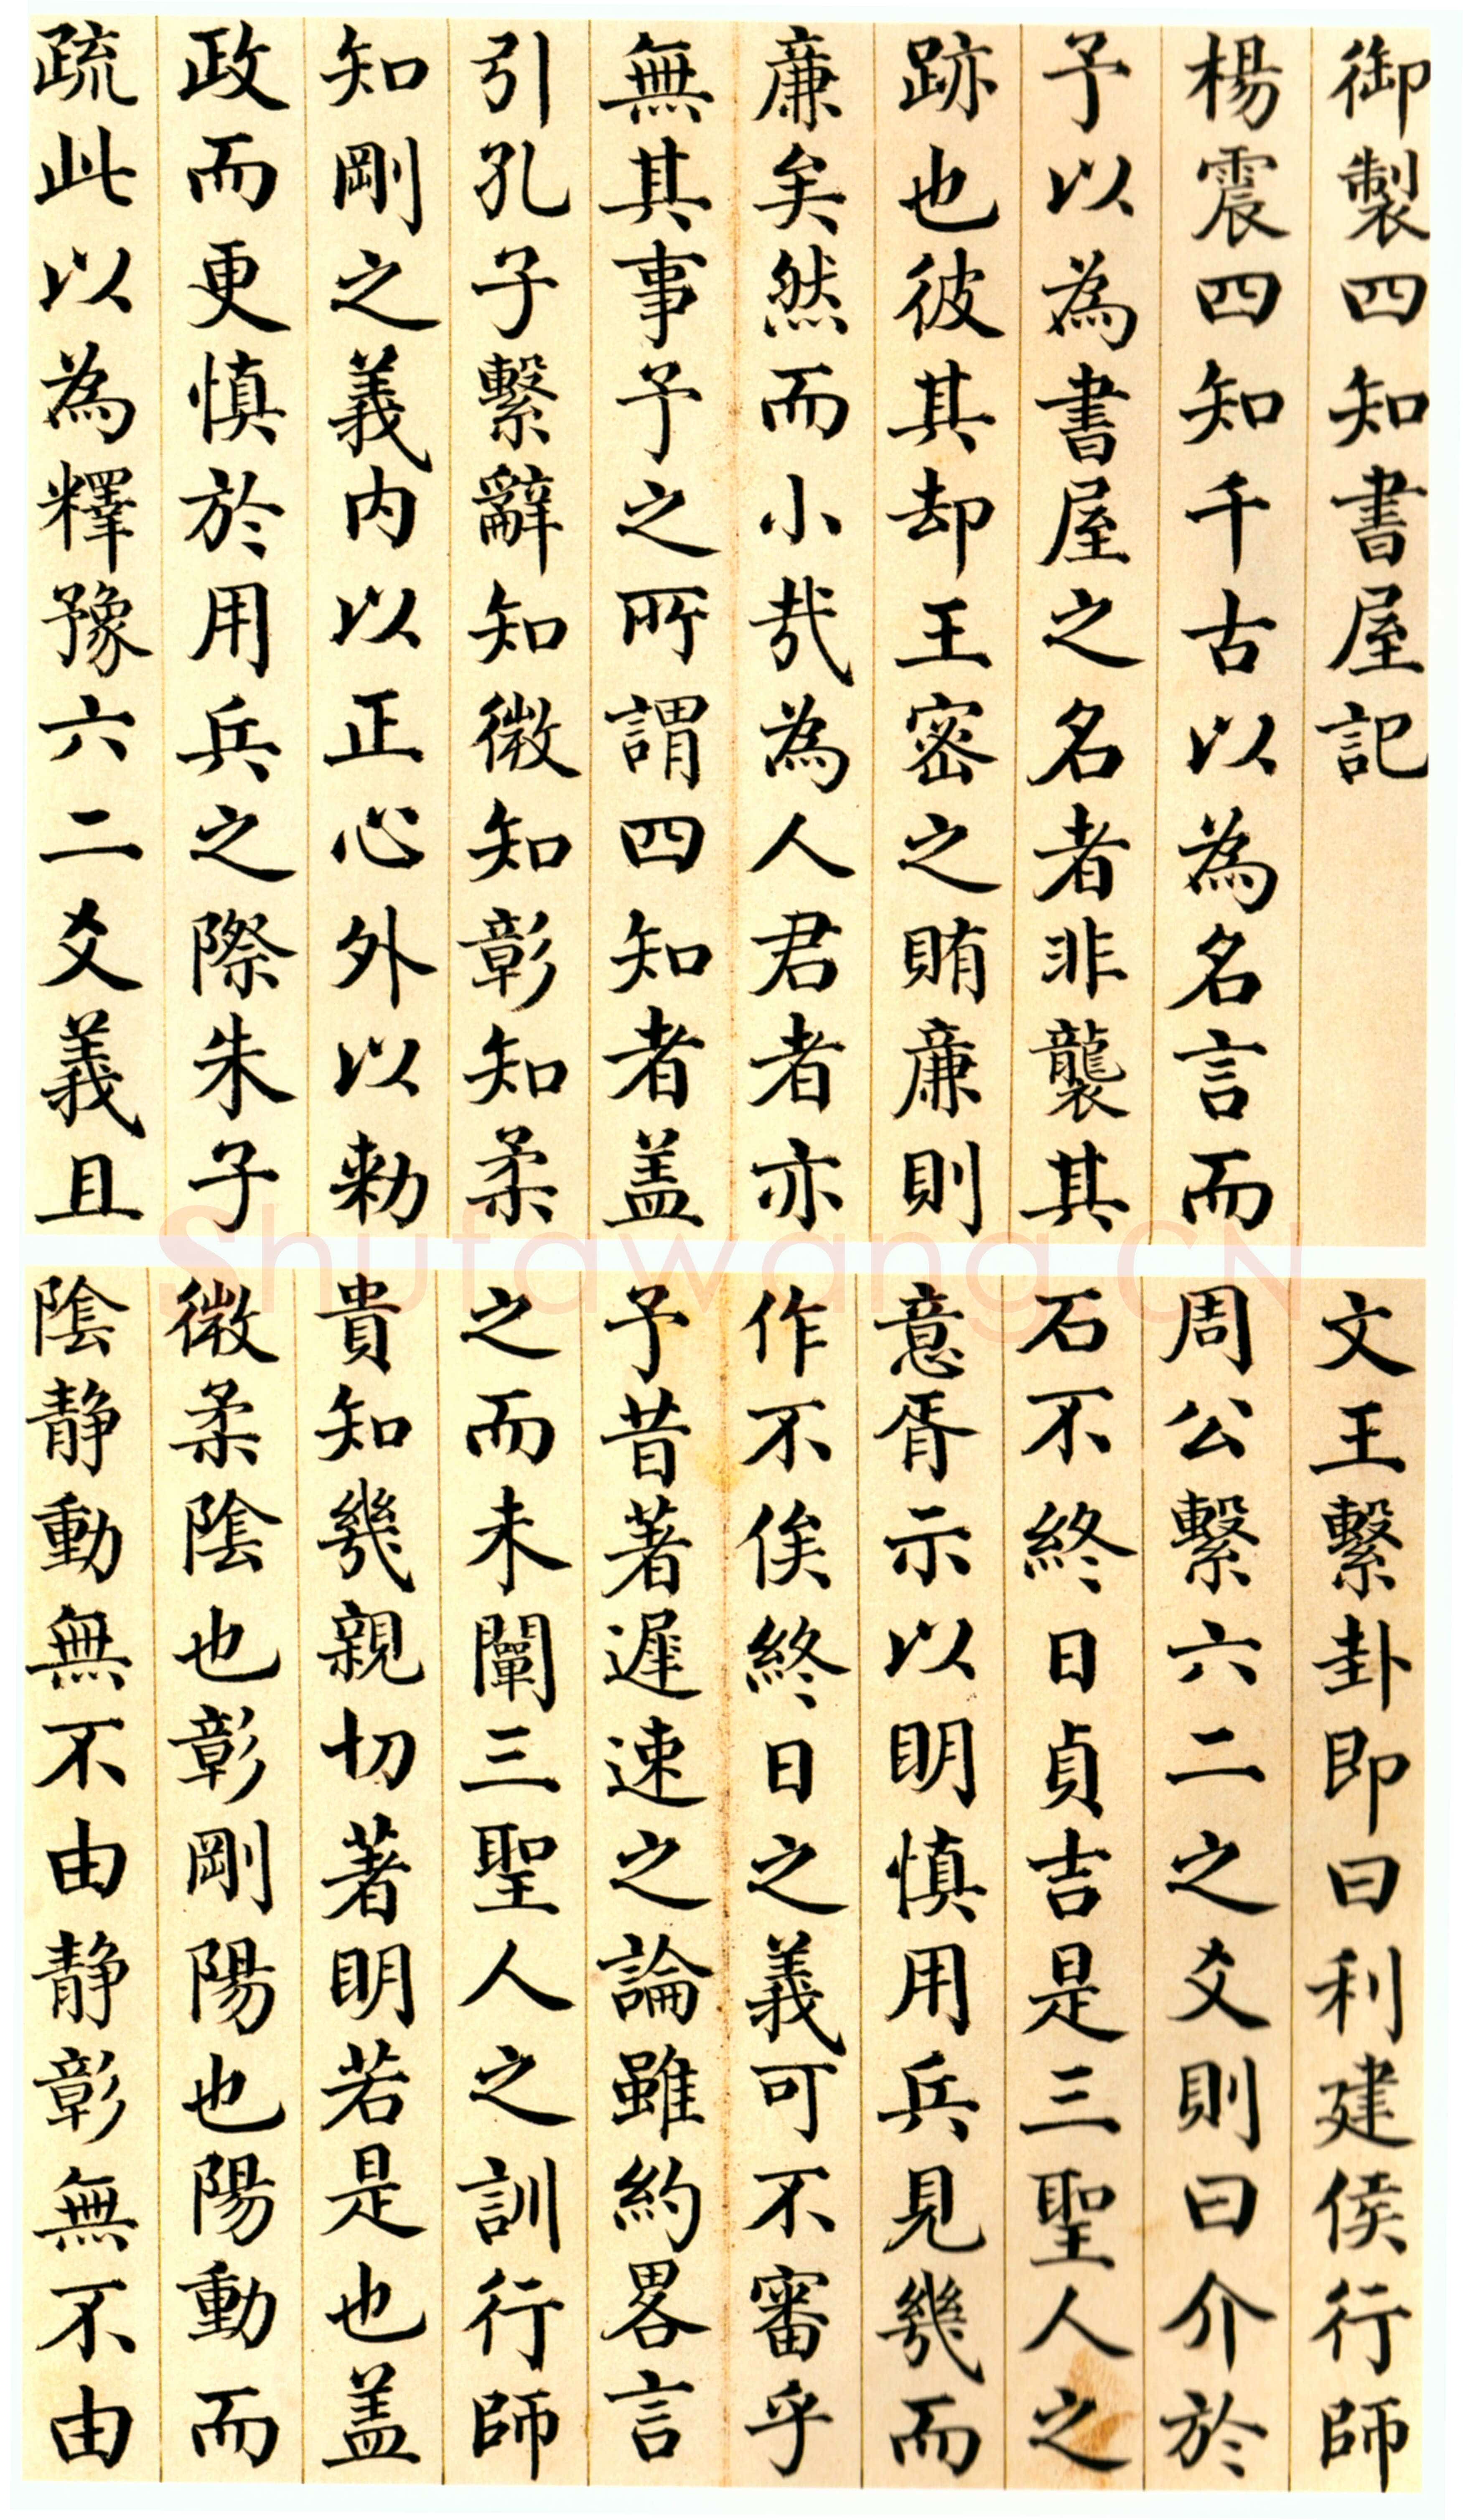 御製四知書屋記
楊震四知千古以為名言而
予以為書屋之名者非襲其
跡也彼其却王密之賄廉則
廉矣然而小哉為人君者亦
無其事予之所謂四知者蓋
引孔子繫辭知微知彰知柔
知剛之義內以正心外以勑
政而更慎於用兵之際朱子
疏此以為釋豫六二爻義且
文王繫卦即曰利建侯行師
周公繫六二之爻則曰介於
石不終日貞吉是三聖人之
意胥示以明慎用兵見幾而
作不俟終日之義可不審乎
予昔著遲速之論雖約畧言
之而未闡三聖人之訓行師
貴知幾親切著明若是也蓋
微柔陰也彰剛陽也陽動而
陰靜動無不由靜彰無不由
Shufawang.CN